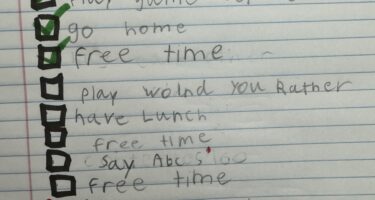 game
go home
free time
play wolnd You Rather
have Lunch
free time
Say Abcs
free time